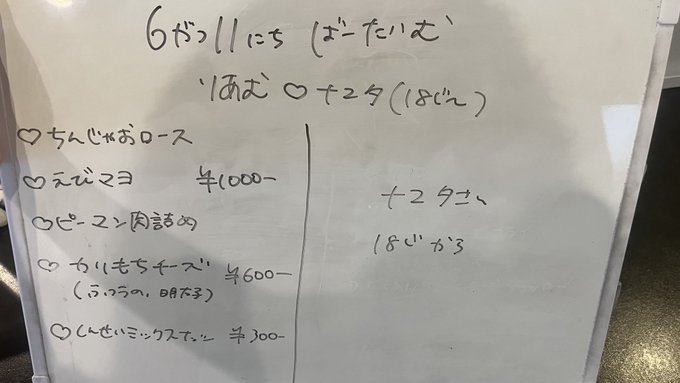 6がつ11にち ばーたいむ
りあむ♡ナユタ(18じ〜)
♡ちんじゃおロース
♡えびマヨ ¥1000-
♡ピーマン肉詰め
♡かりもちチーズ ¥600-
(ふつうの、明太子)
♡しんせいミックスナッツ ¥300-
ナユタさん
18じから